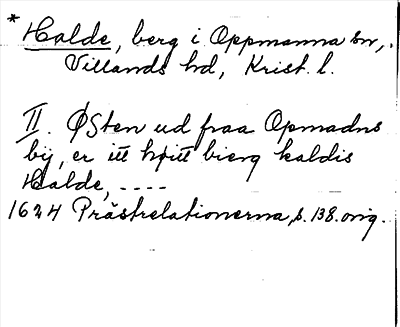 * Halde, berg i Oppmanna sn,
Villands hd, Krist. l.
II. Østen ud fraa Opmadns
bij, er itt høitt bierg kaldis
Halde, ----
1624 Prästrelationerna, s. 138. orig.